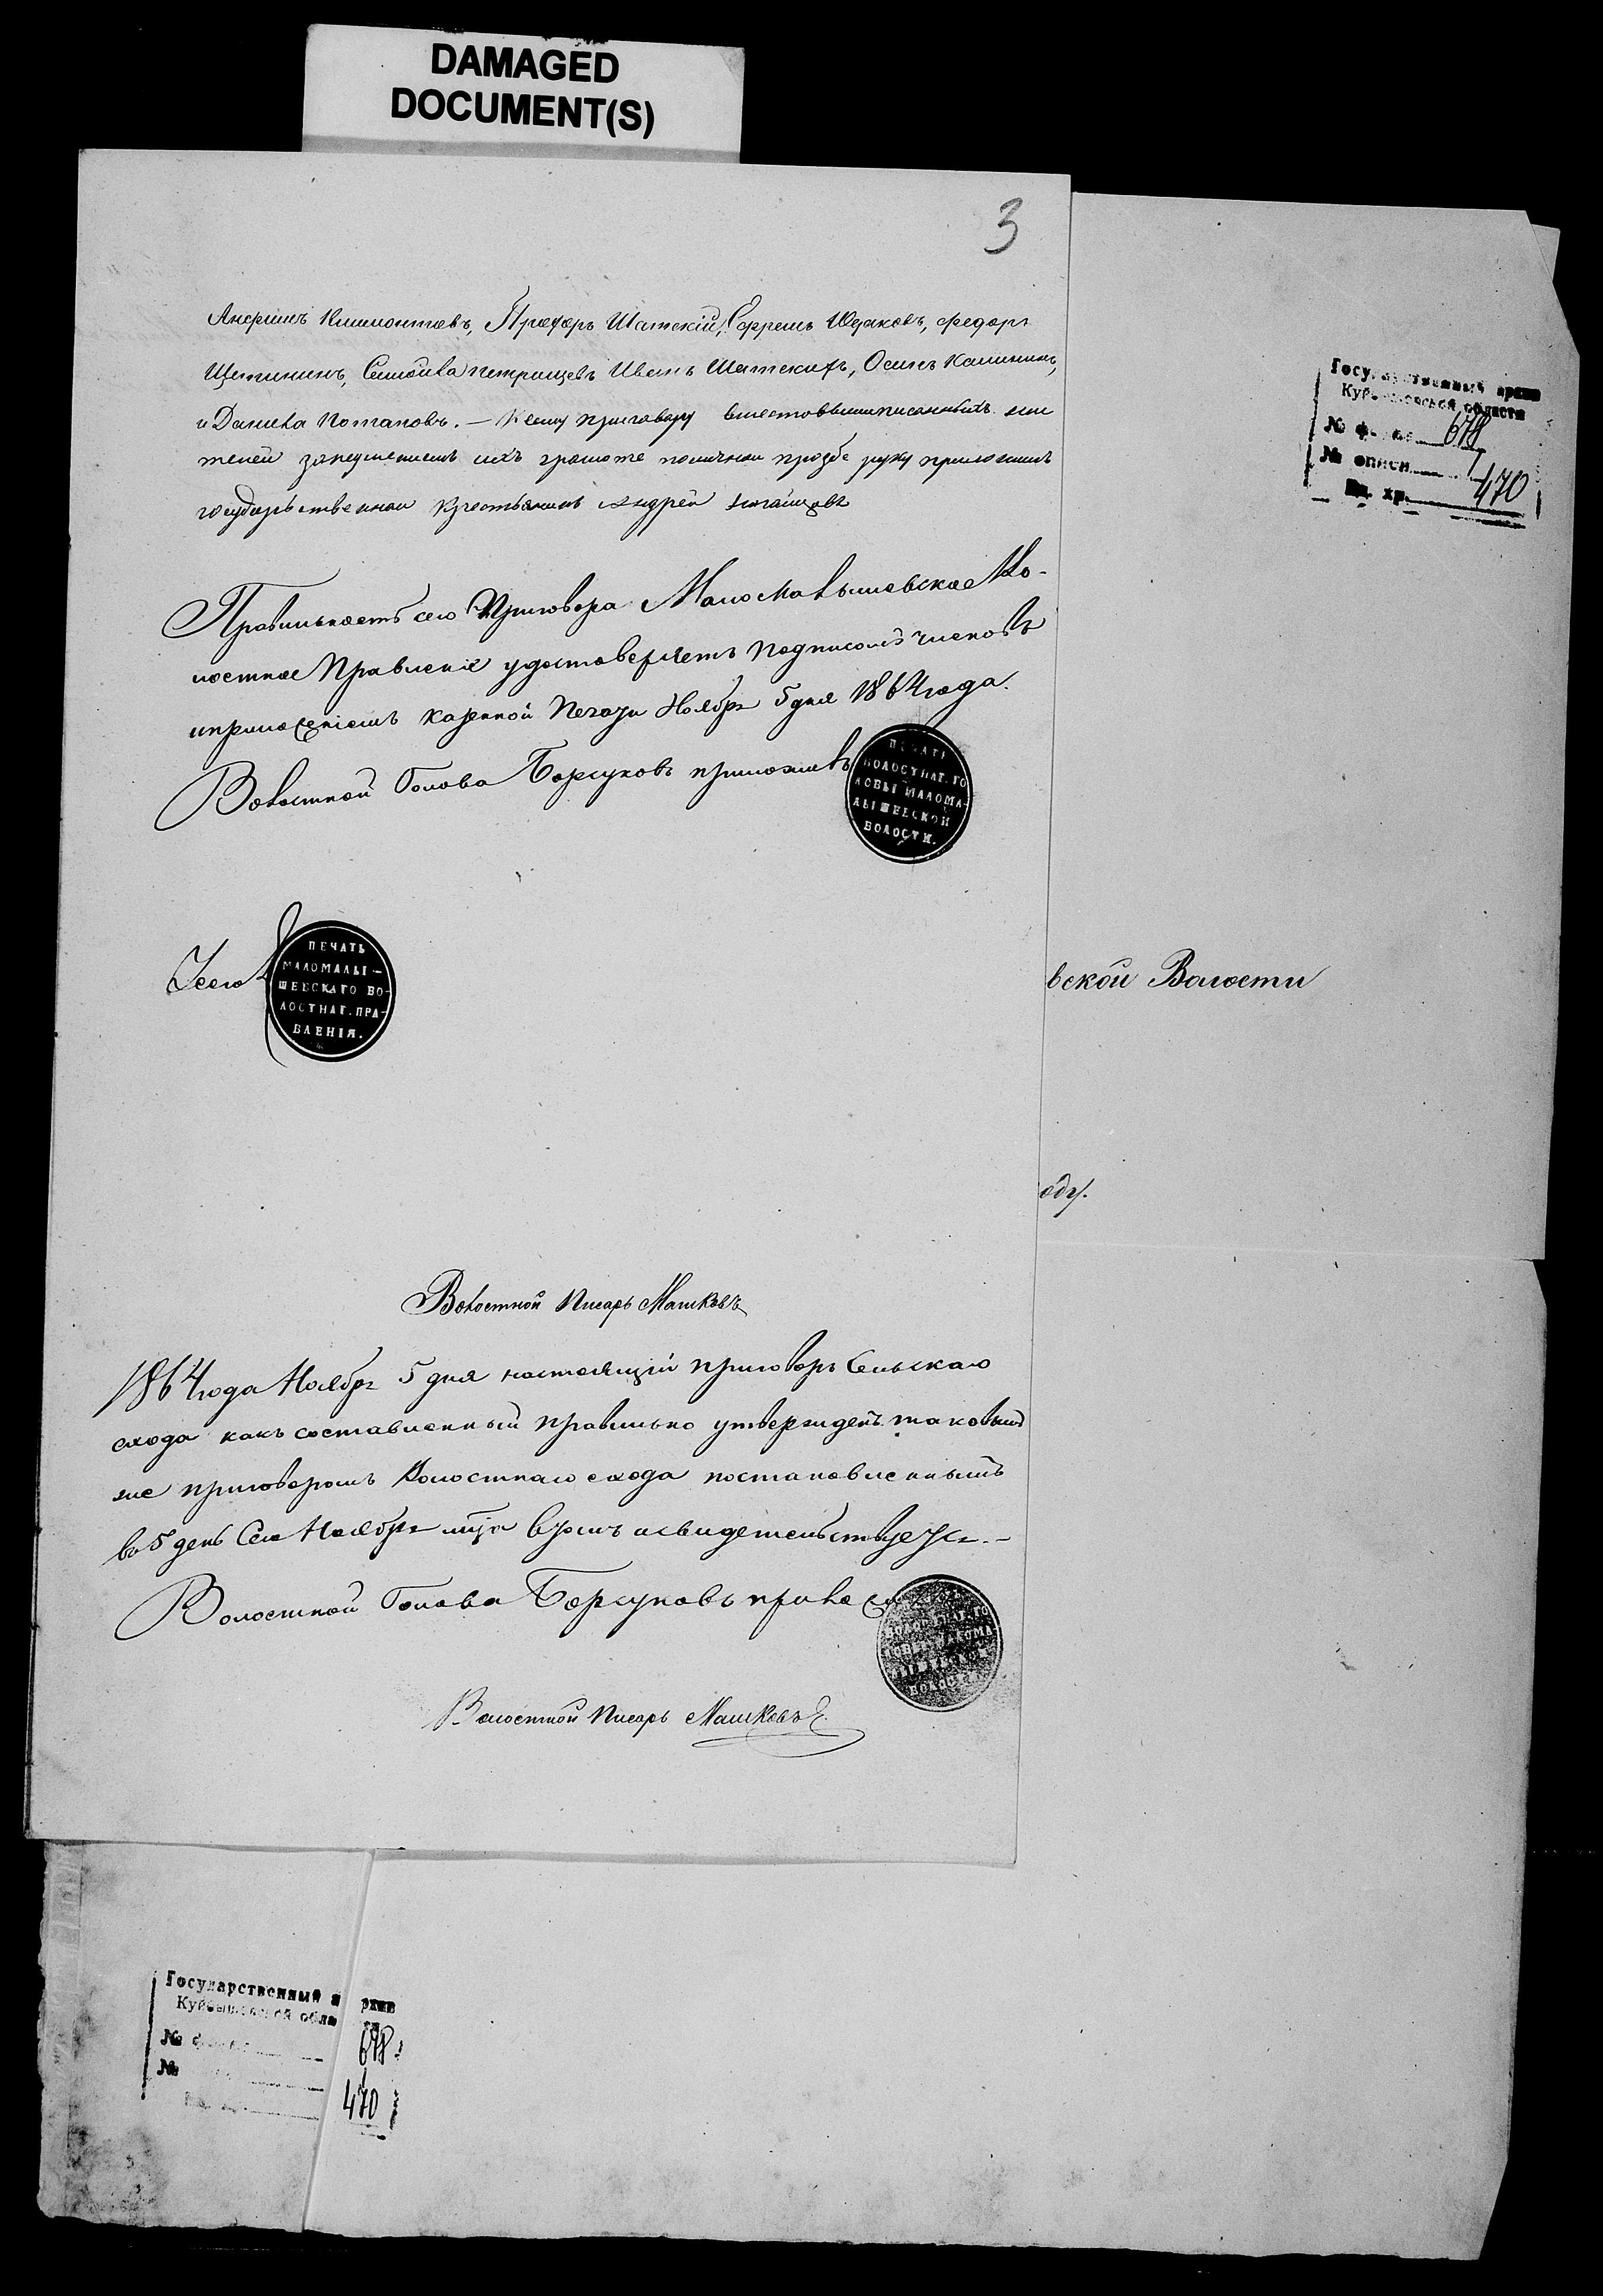 DAMAGED
DOCUMENT(S)
3
Анфимъ Климонтовъ, Прохоръ Шатскій, Ефремъ Шедаковъ, Федоръ
Щетининъ, Самойла Петрищевъ Иванъ Шатскихъ, Осипъ Калининъ,
и Данила Потаповъ. — К сему приговору вместо вышписанныхъ жи
телей за неумениемъ ихъ грамоте поличнои прозбе руку приложилъ
государьственнои крестьянинъ Андрей
Правильность сего Приговора Маломалышевское Во-
лостное Правленіе удостоверяетъ подписомъ членовъ
и приложеніемъ казенной Печати Ноября 5 дня 1864 года.
Волостной Голова Борсуковъ приложилъ
ПЕЧАТЬ
ВОЛОСТНАГ. ГО
ЛОВЫ МАЛОМА-
ЛЫШЕВСКОЙ
ВОЛОСТИ.
ПЕЧАТЬ
МАЛОМАЛЫ-
ШЕВСКАГО ВО-
ЛОСТНАГ. ПРА-
ВЛЕНІЯ.
Волостной Писарь Машковъ
1864 года Ноября 5 дня настоящій приговоръ Сельскаго
схода какъ составленный правильно утвержденъ таковымъ
же приговоромъ Волостнаго схода постановленнымъ
во 5 день Сего Ноября м-ца в чомъ и свидетельствуетъ. -
Волостной Голова Борсуковъ
ВОЛОСТНАГ. ГО
ЛОВЫ МАЛОМА
ЛЫШЕВСКОЙ
ВОЛОСТИ
Волостной Писарь Машковъ
Государственный архив
Куйбышевской области
№ фонда 678
№ описи 1
Ед. хр. 470
вской Волости
оду.
Государственный архив
Куйбышевской обла
№ 678
№ 1
470